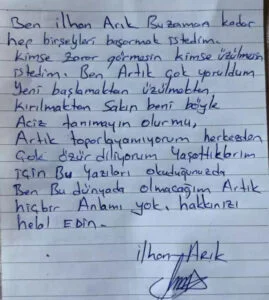 Ben ilhan Arık Bu zaman kadar
hep birşeyleri başarmak istedim.
kimse zarar görmesin kimse üzülmesin
istedim. Ben Artık çok yoruldum
Yeni başlamaktan üzülmekten
kırılmaktan Sakın beni böyle
Aciz tanımayın olurmu,
Artık toparlayamıyorum herkezden
Çok özür diliyorum Yaşattıklarım
için Bu Yazıları okuduğunuzda
Ben Bu dünyada olmacağım Artık
hiçbir Anlamı yok. hakkınızı
helal EDin.
ilhan Arık